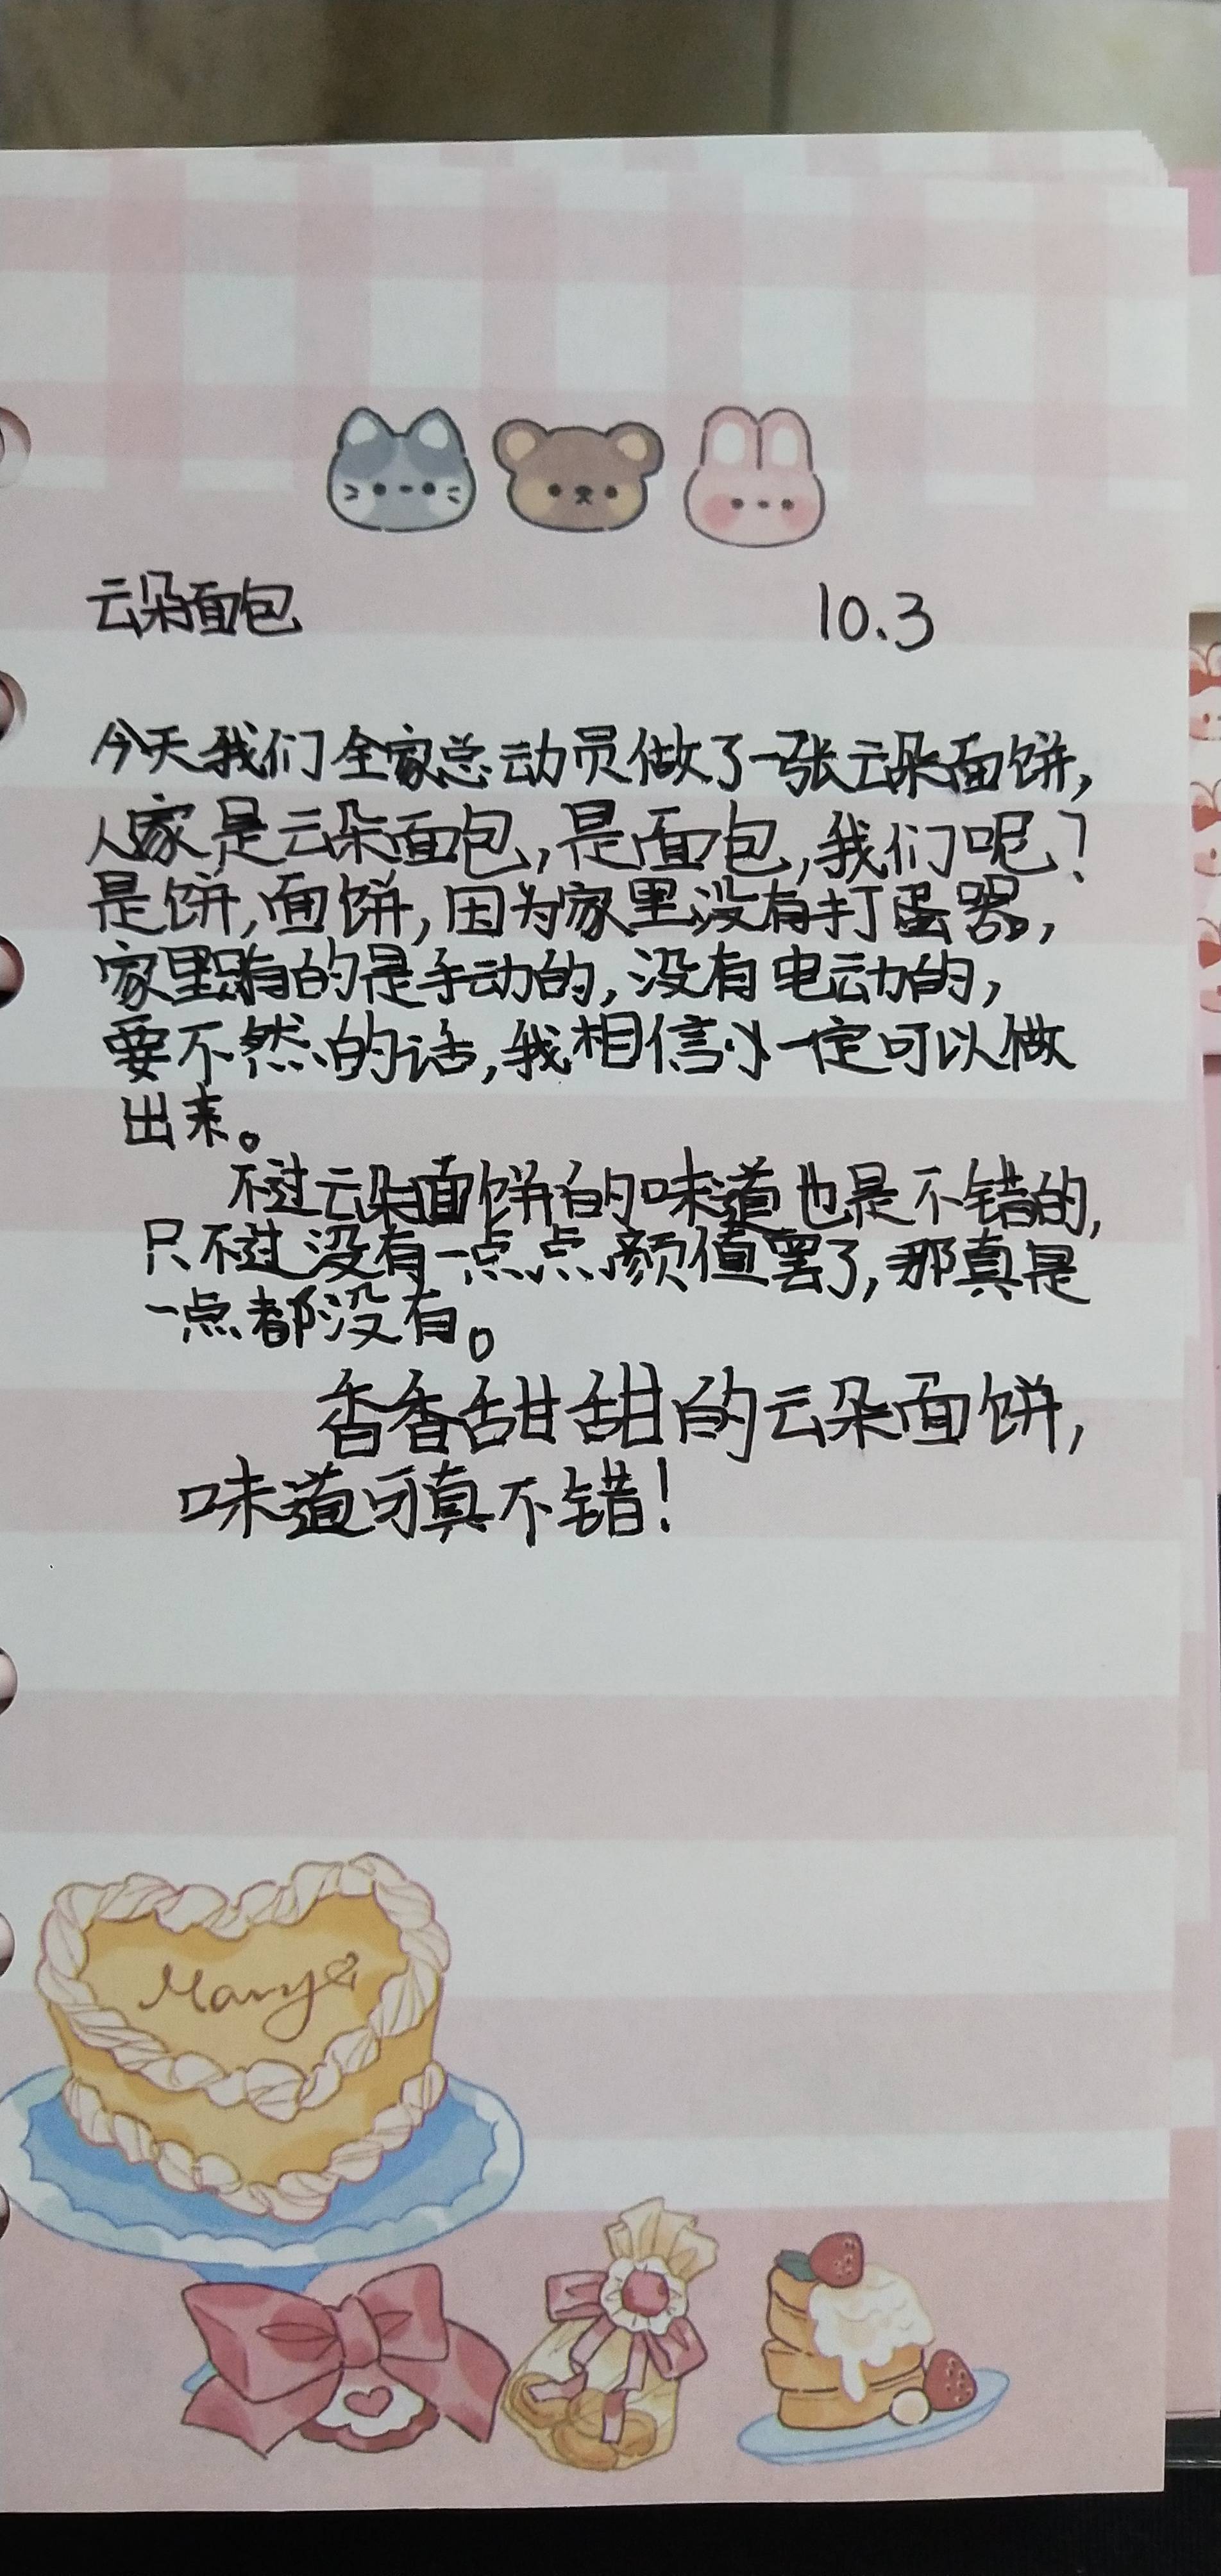 云朵面包 10.3
今天我们全家总动员做了一张云朵面饼,
人家是云朵面包,是面包,我们呢?
是饼,面饼,因为家里没有打蛋器,
家里有的是手动的,没有电动的,
要不然的话,我相信一定可以做
出来。
不过云朵面饼的味道也是不错的,
只不过没有一点点颜值罢了,那真是
一点都没有。
香香甜甜的云朵面饼,
味道可真不错!
Mary